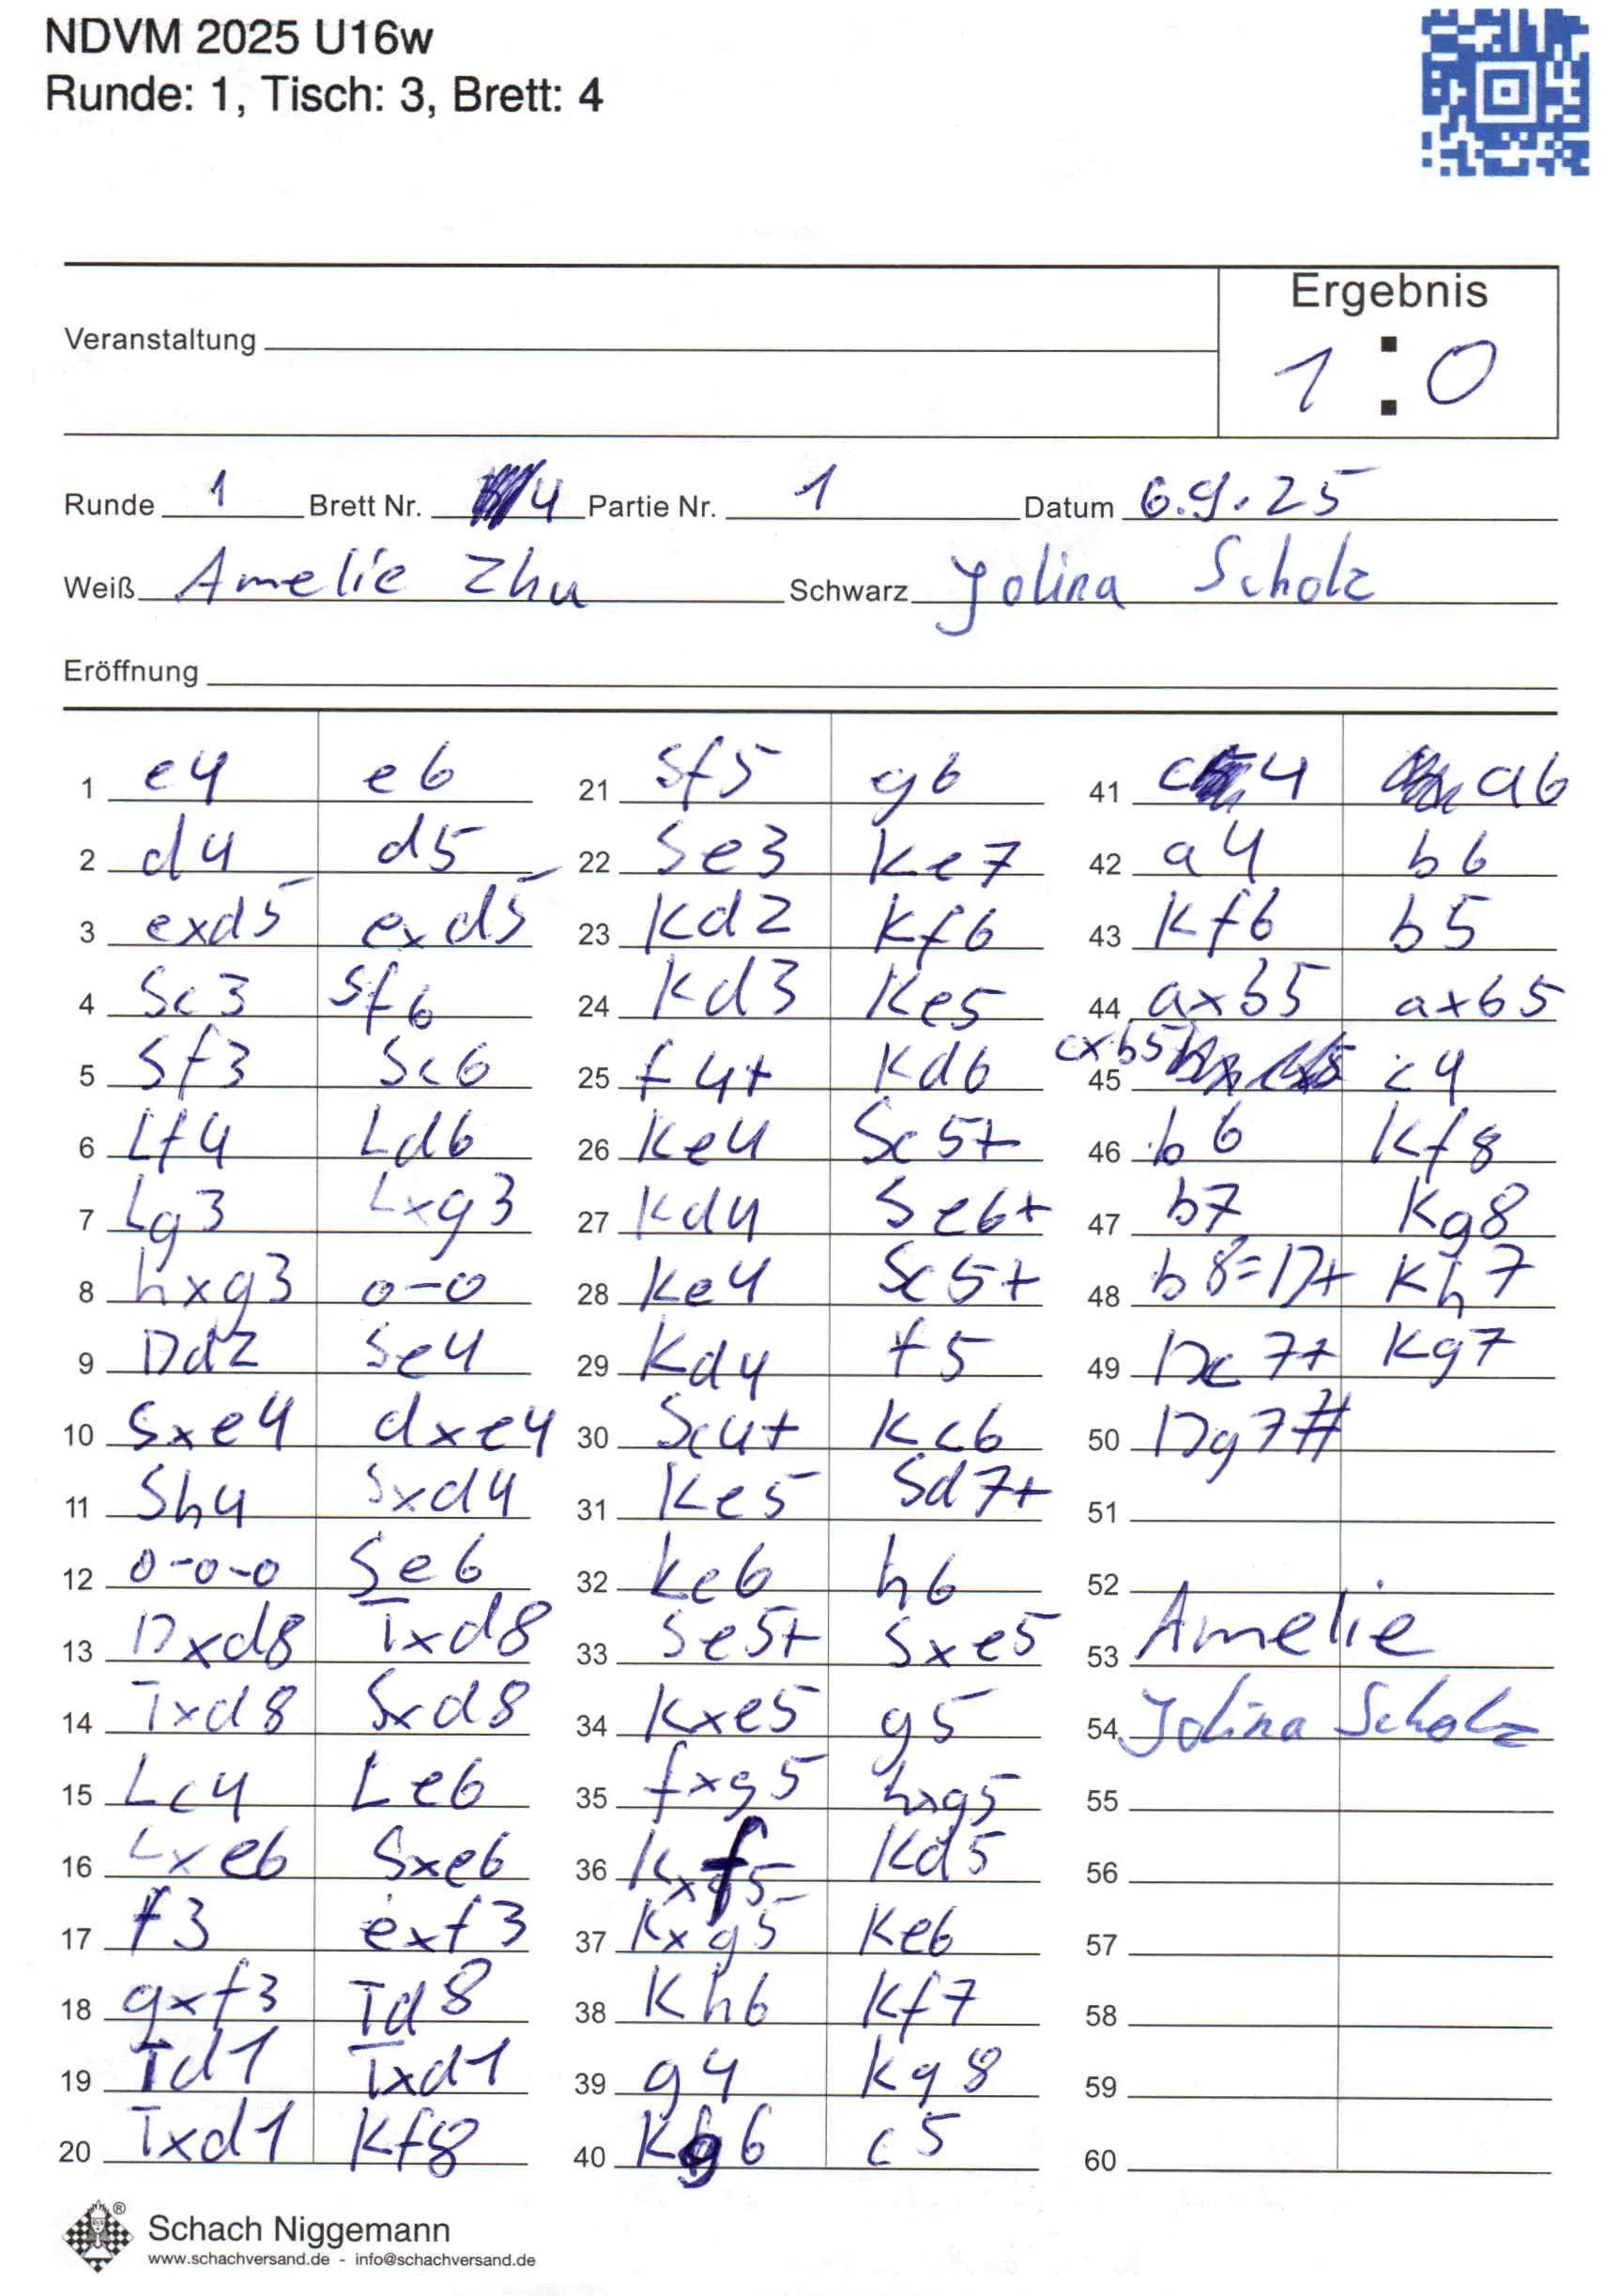 NDVM 2025 U16w
Runde: 1, Tisch: 3, Brett: 4
Ergebnis
Veranstaltung
1 : 0
Runde 1 Brett Nr. 4 Partie Nr. 1 Datum 6.9.25
Weiß Amelie Zhu Schwarz Jolina Scholz
Eröffnung
1 e4 e6
2 d4 d5
3 exd5 exd5
4 Sc3 Sf6
5 Sf3 Sc6
6 Lf4 Ld6
7 Lg3 Lxg3
8 hxg3 0-0
9 Dd2 Se4
10 Sxe4 dxe4
11 Sh4 Sxd4
12 0-0-0 Se6
13 Dxd8 Txd8
14 Txd8 Sxd8
15 Lc4 Le6
16 Lxe6 Sxe6
17 f3 exf3
18 gxf3 Td8
19 Td1 Txd1
20 Txd1 Kf8
21 Sf5 g6
22 Se3 Ke7
23 Kd2 Kf6
24 Kd3 Ke5
25 f4+ Kd6
26 Ke4 Sc5+
27 Kd4 Se6+
28 Ke4 Sc5+
29 Kd4 f5
30 Sc4+ Kc6
31 Ke5 Sd7+
32 Ke6 h6
33 Se5+ Sxe5
34 Kxe5 g5
35 fxg5 hxg5
36 Kxf5 Kd5
37 Kxg5 Ke6
38 Kh6 Kf7
39 g4 Kg8
40 Kg6 c5
41 c4 a6
42 a4 b6
43 Kf6 b5
44 axb5 axb5
45 cxb5 c4
46 b6 Kf8
47 b7 Kg8
48 b8=D+ Kh7
49 Dc7+ Kg7
50 Dg7#
51
52
53 Amelie
54 Jolina Scholz
55
56
57
58
59
60
Schach Niggemann
www.schachversand.de - info@schachversand.de